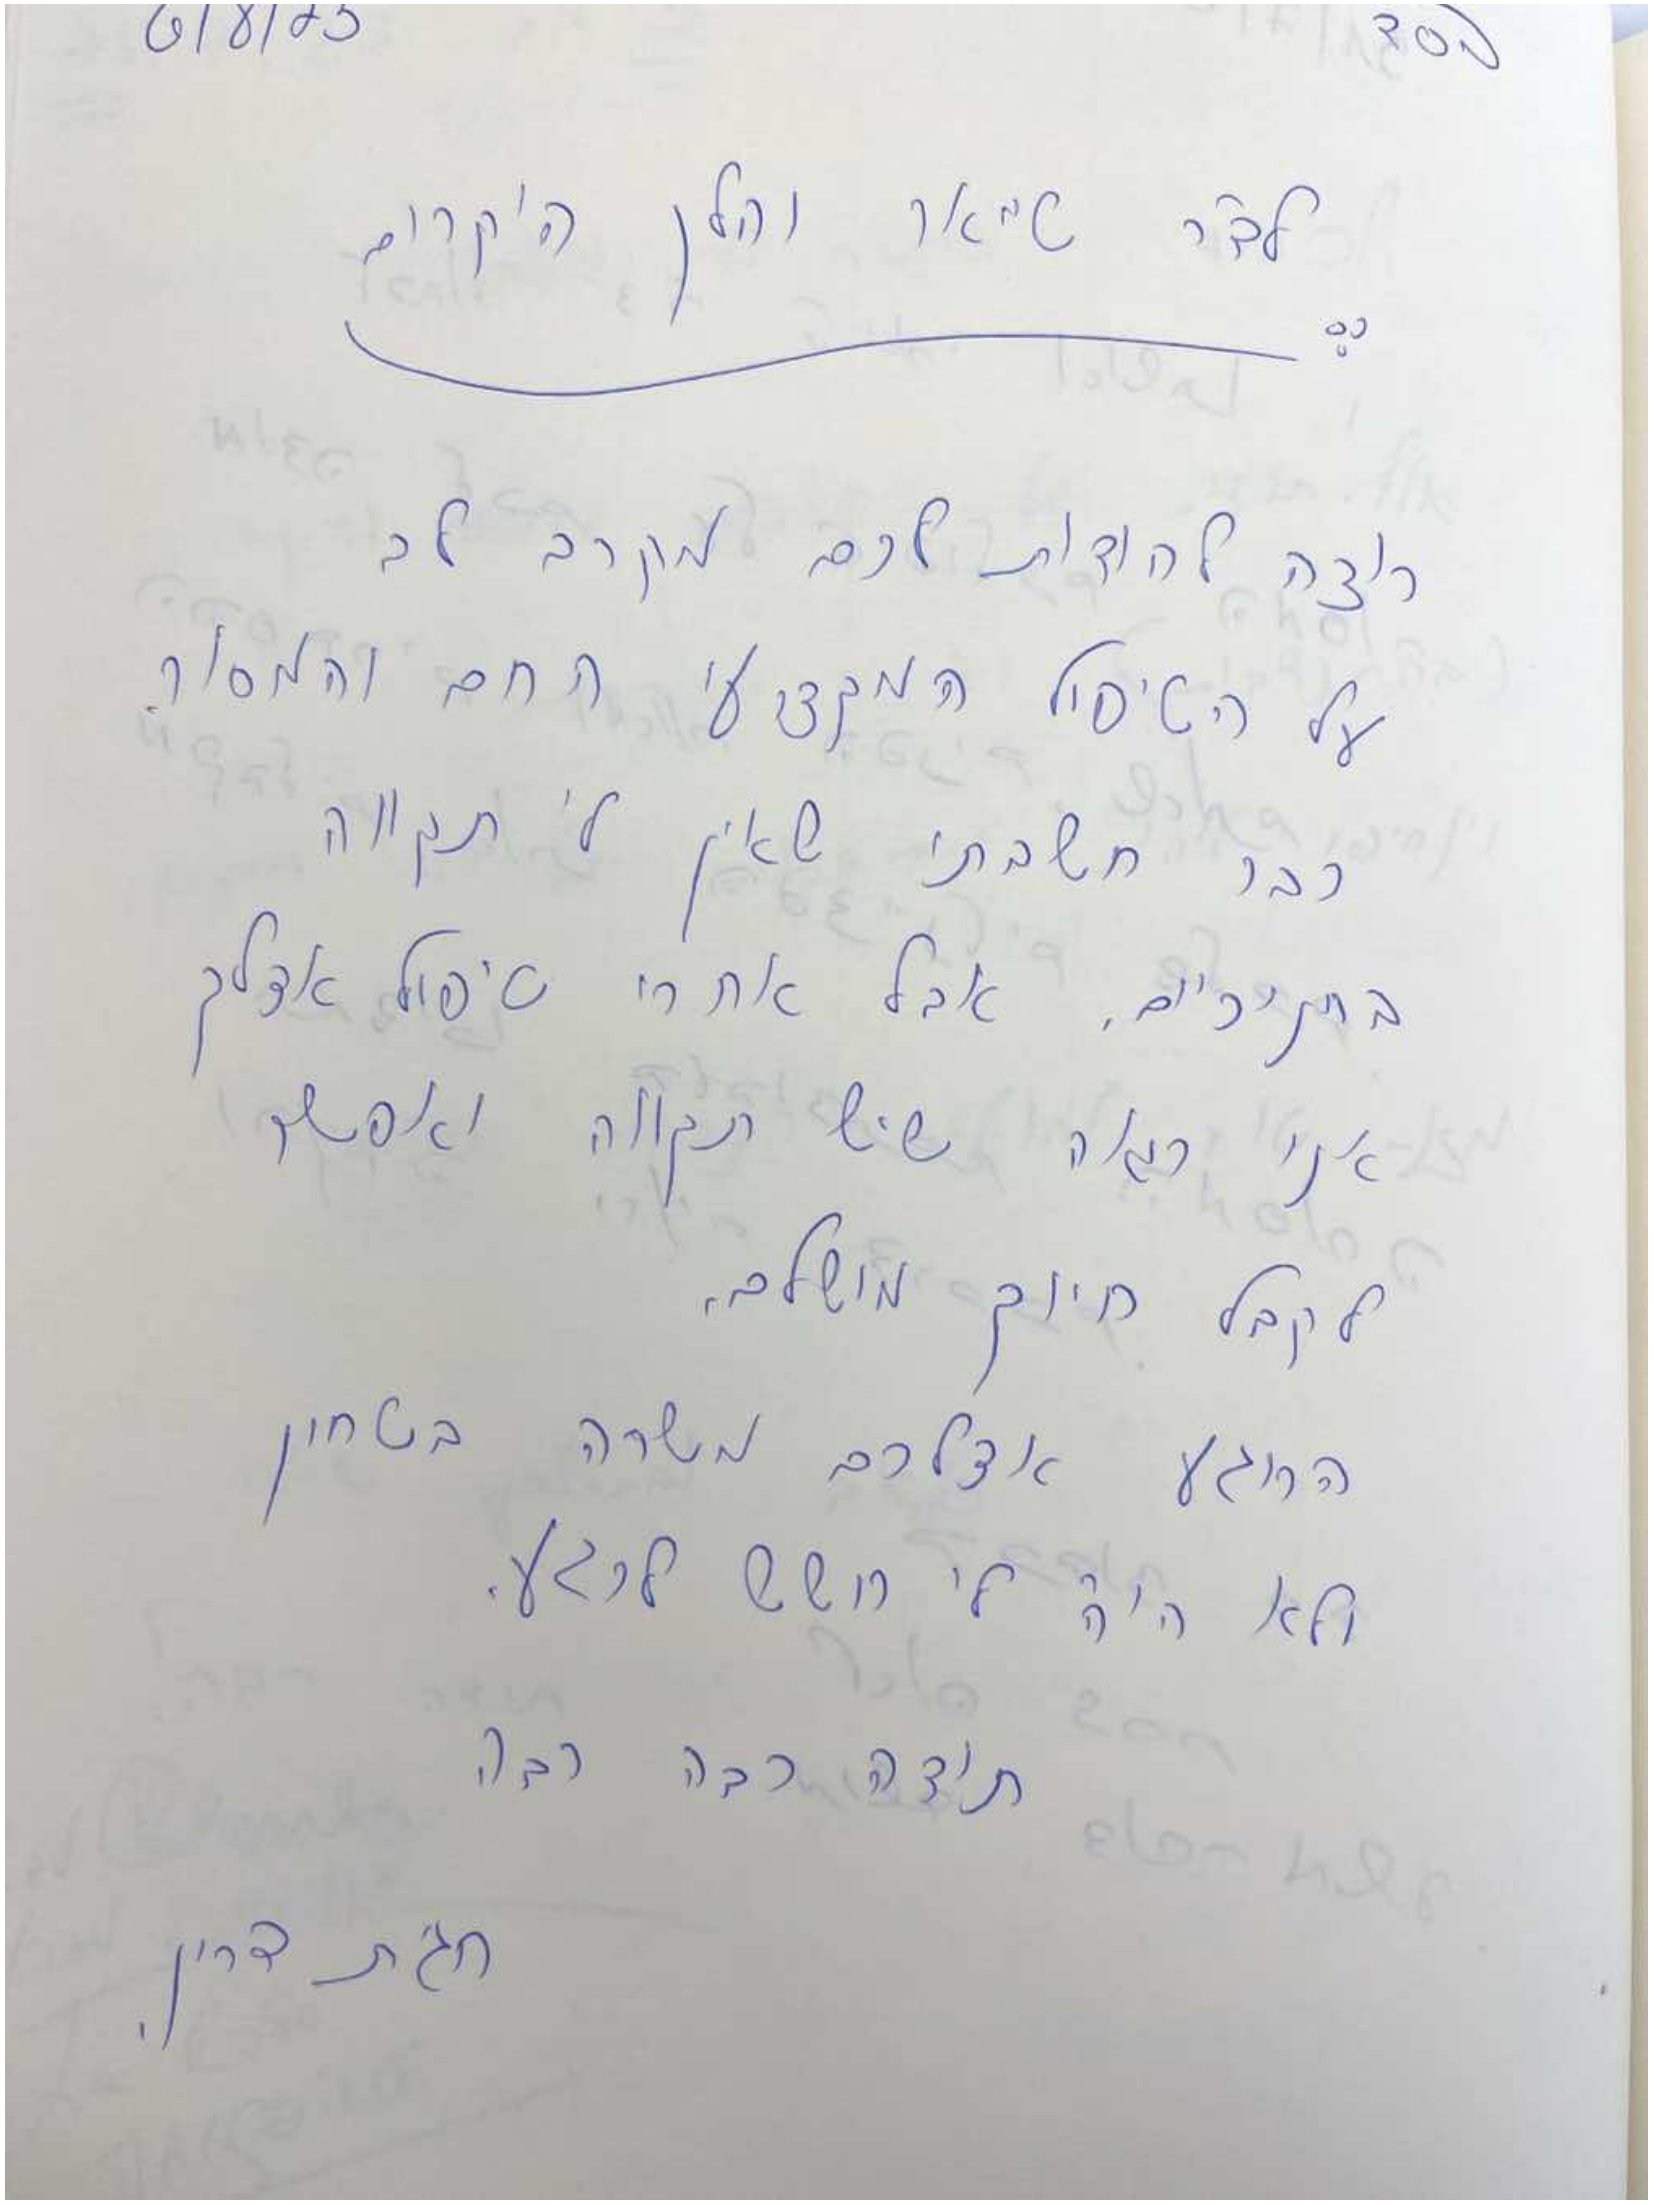 בס"ד 6/8/23
לד"ר שייאר והלן היקרים
רוצה להודות לכם מקרב לב
על הטיפול המקצועי החם והמסור.
כבר חשבתי שאין לי תקווה
בחניכיים. אבל אחרי טיפול אצלך
אני רואה שיש תקווה ואפשר
לקבל חיוך מושלם.
הרוגע אצלכם משרה בטחון
ולא היה לי חשש לרגע.
תודה רבה רבה
חגית דרוין.